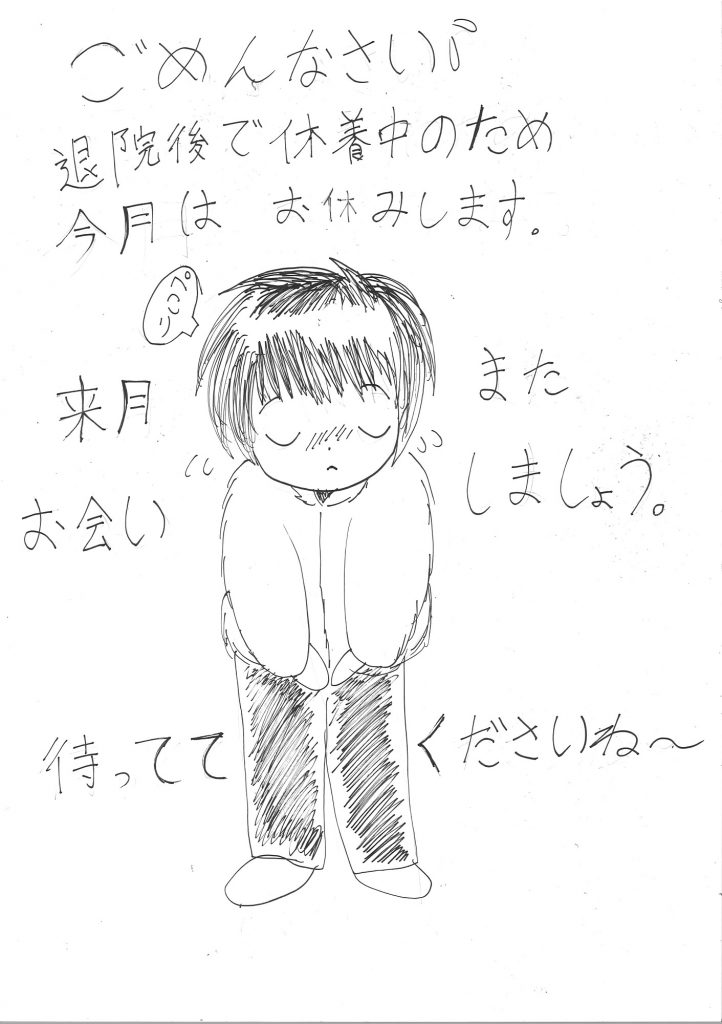 ごめんなさい
退院後で休着中のため
今月は お休みします。
ぺこり。
来月 また
お会い しましょう。
待ってて くださいね〜